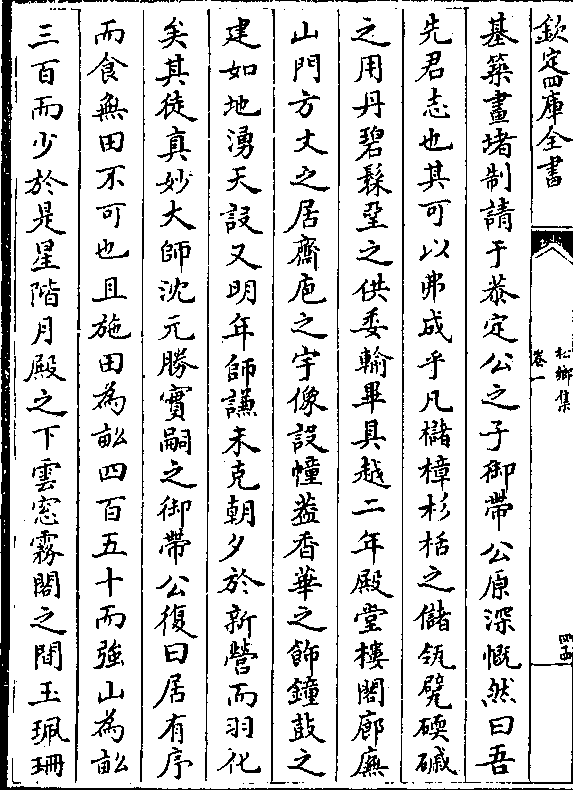 欽定四庫全書
松鄉集
卷一
四五
基築畫堵制請于恭定公之子御帶公原深慨然曰吾
先君志也其可以弗成乎凡櫧樟杉栝之儲瓴甓碝磩
之用丹碧髹堊之供委輸畢具越二年殿堂樓閣廊廡
山門方丈之居齋庖之宇像設幢葢香華之飾鐘鼓之
建如地湧天設又明年師謙未克朝夕於新營而羽化
矣其徒真妙大師沈元勝實嗣之御帶公復曰居有序
而食無田不可也且施田為畝四百五十而強山為畝
三百而少於是星階月殿之下雲窓霧閣之間玉珮珊